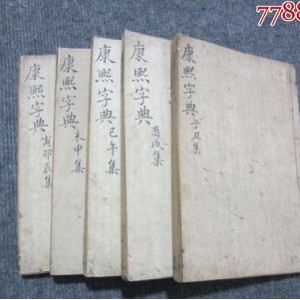 7788
康熙字典 子丑集
康熙字典 酉戌集
康熙字典 巳午集
康熙字典 未申集
康熙字典 寅卯辰集